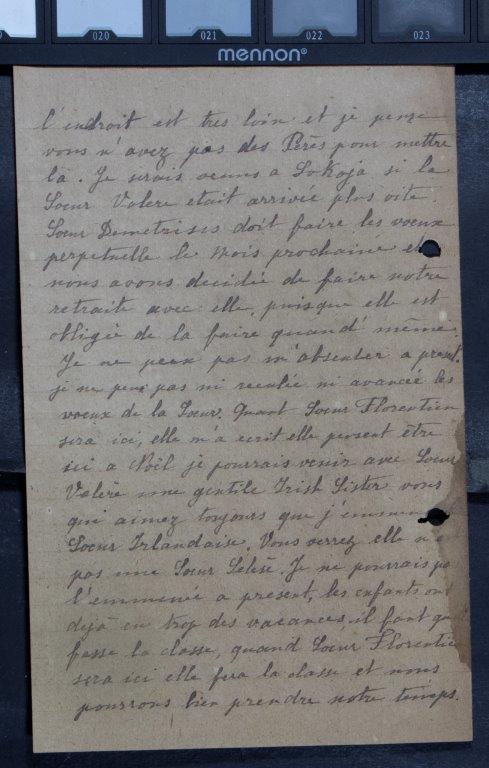 020 021 022 023
mennon®
l'endroit est tres loin et je pense
vous n'avez pas des Pères pour mettre
là. Je serais venus a Lokoja si la
Soeur Valere etait arrivée plus vite.
Soeur Demetrises doit faire les voeux
perpetuelle le mois prochaine et
nous avons decidée de faire notre
retraite avec elle, puisque elle est
obligée de la faire quand même.
Je ne peux pas m'absenter a present.
je ne peux pas ni reculée ni avancée les
voeux de la Soeur. Quant Soeur Florentien
sera ici, elle m'a ecrit elle pensent être
ici a Noël je pourrais venir avec Soeur
Valère une gentile Irish Sister vous
qui aimez toujours que j'emmene
Soeur Irlandaise. Vous verrez elle n'e
pas une Soeur. Je ne pourrais pa
l'emmenée a present, les enfants on
déjà eu trop des vacances, il faut qu
fasse la classe, quand Soeur Florentie
sera ici elle fera la classe et nous
pourrons bien prendre notre temps.